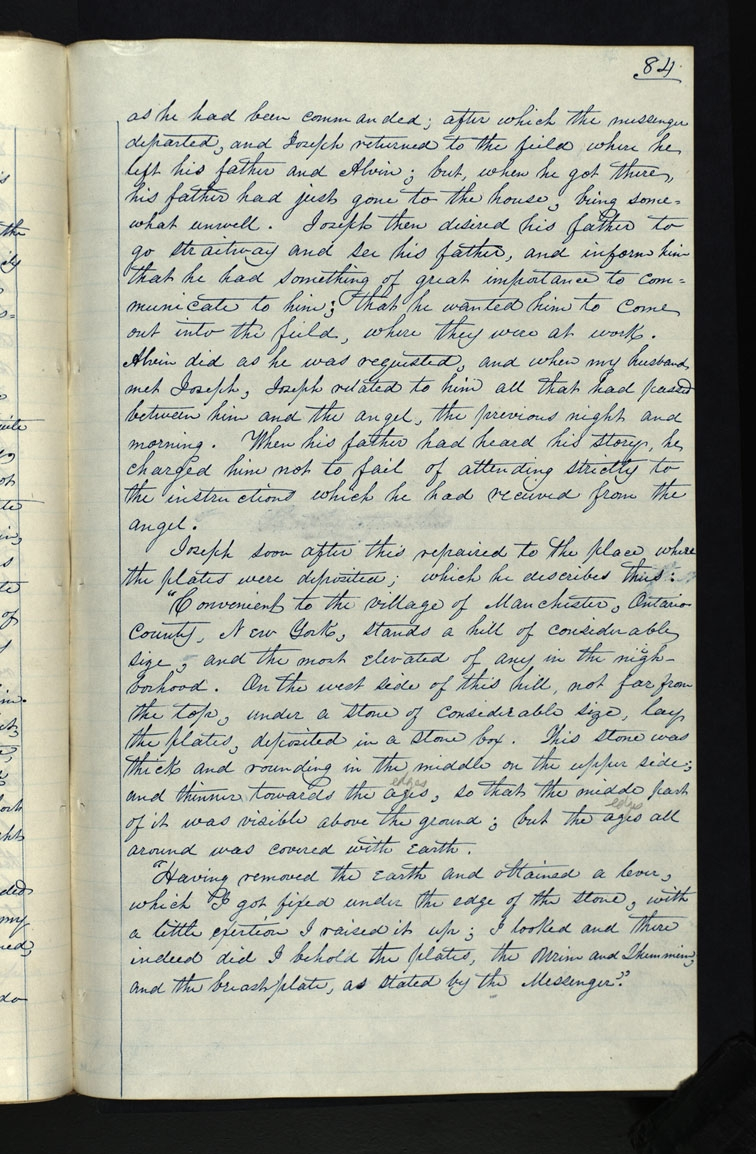 84.
as he had been commanded; after which the messenger
departed, and Joseph returned to the field where he
left his father and Alvin; but, when he got there,
his father had just gone to the house, being some=
what unwell. Joseph then desired his father to
go straitway and see his father, and inform him
that he had something of great importance to com=
municate to him; that he wanted him to come
out into the field, where they were at work.
Alvin did as he was requested, and when my husband
met Joseph, Joseph related to him all that had passed
between him and the angel, the previous night and
morning. When his father had heard his story, he
charged him not to fail of attending strictly to
the instructions which he had received from the
angel.
Joseph soon after this repaired to the place where
the plates were deposited; which he describes thus:
"Convenient to the village of Manchester, Ontario
County, New York, stands a hill of considerable
size, and the most elevated of any in the nigh-
borhood. On the west side of this hill, not far from
the top, under a stone of considerable size, lay
the plates, deposited in a stone box. This stone was
thick and rounding in the middle on the upper side;
edges
and thinner towards the ages, so that the middle part
edges
of it was visible above the ground; but the ages all
around was covered with earth.
"Having removed the earth and obtained a lever,
which I got fixed under the edge of the stone, with
a little exertion I raised it up; I looked and there
indeed did I behold the plates, the Urim and Thummim,
and the breastplate, as stated by the Messenger".